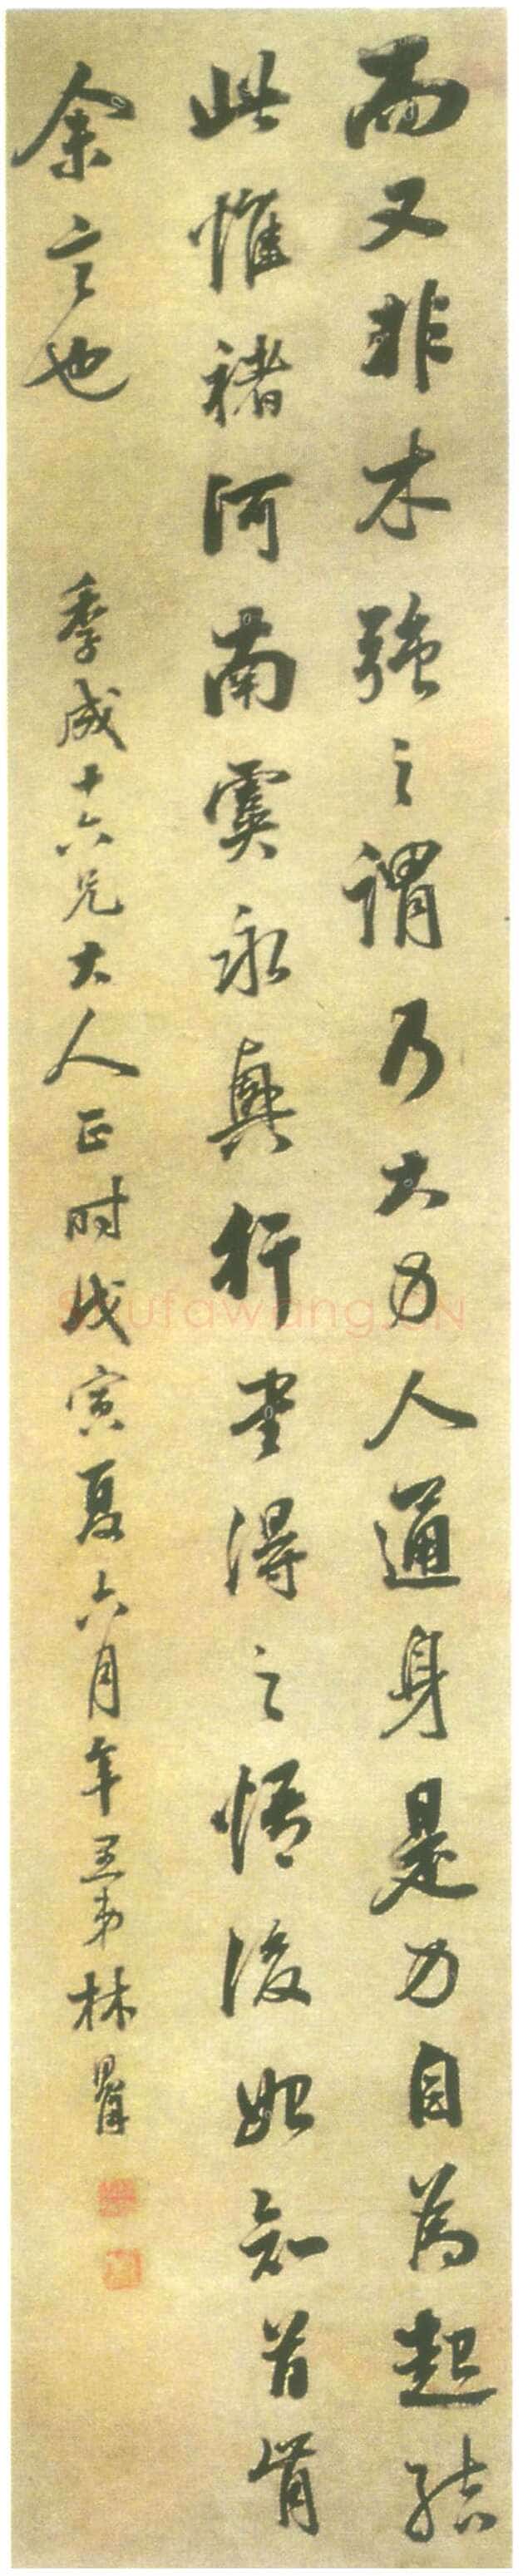 而又非木強之謂乃大力人通身是力自為起結
此惟褚河南虞永興行書得之悟後始知首肯
余言也 季成十六兄大人正时戊寅夏六月年弟林
Shufawang.CN